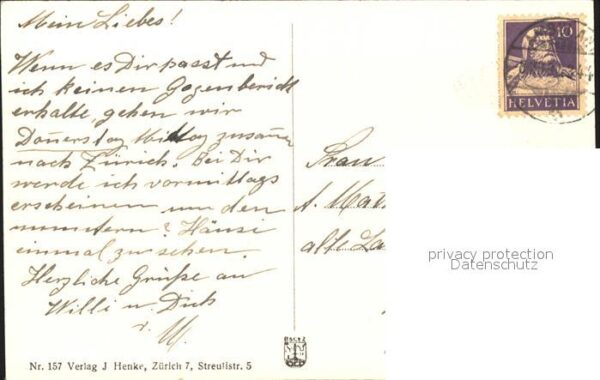 Mein Liebes!
Wenn es Dir passt und
ich keinen Gegenbericht
erhalte, gehen wir
Donnerstag Mittag zusamm
nach Zürich. Bei Dir
werde ich vormittags
erscheinen um den
muntern? Hansi
einmal zu sehen.
Herzliche Grüße an
Willi u. Dich
v. M.
10
HELVETIA
Frau
A. Mat
alte La
privacy protection
Datenschutz
Nr. 157 Verlag J Henke, Zürich 7, Streulistr. 5